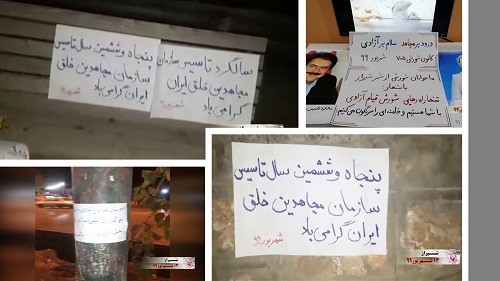 سالگرد تاسیس سازمان
مجاهدین خلق ایران
گرامی باد
شهریور ۹۹
پنجاه وششمین سال تاسیس
سازمان مجاهدین خلق
ایران گرامی باد
شهریور ۹۹
درود بر مجاهد سلام بر آزادی
کانون شورشی شهریور ۹۹
ما جوانان شورشی از شهر شیراز
با شعار:
تنها راه رهایی شورش قیام آزادی
با شما هستیم و را سرنگون می کنیم
پنجاه وششمین سال تاسیس
سازمان مجاهدین خلق
ایران گرامی باد
شهریور ۹۹
شیراز
۱۳ شهریور ۹۹
شیراز
۱۳ شهریور ۹۹